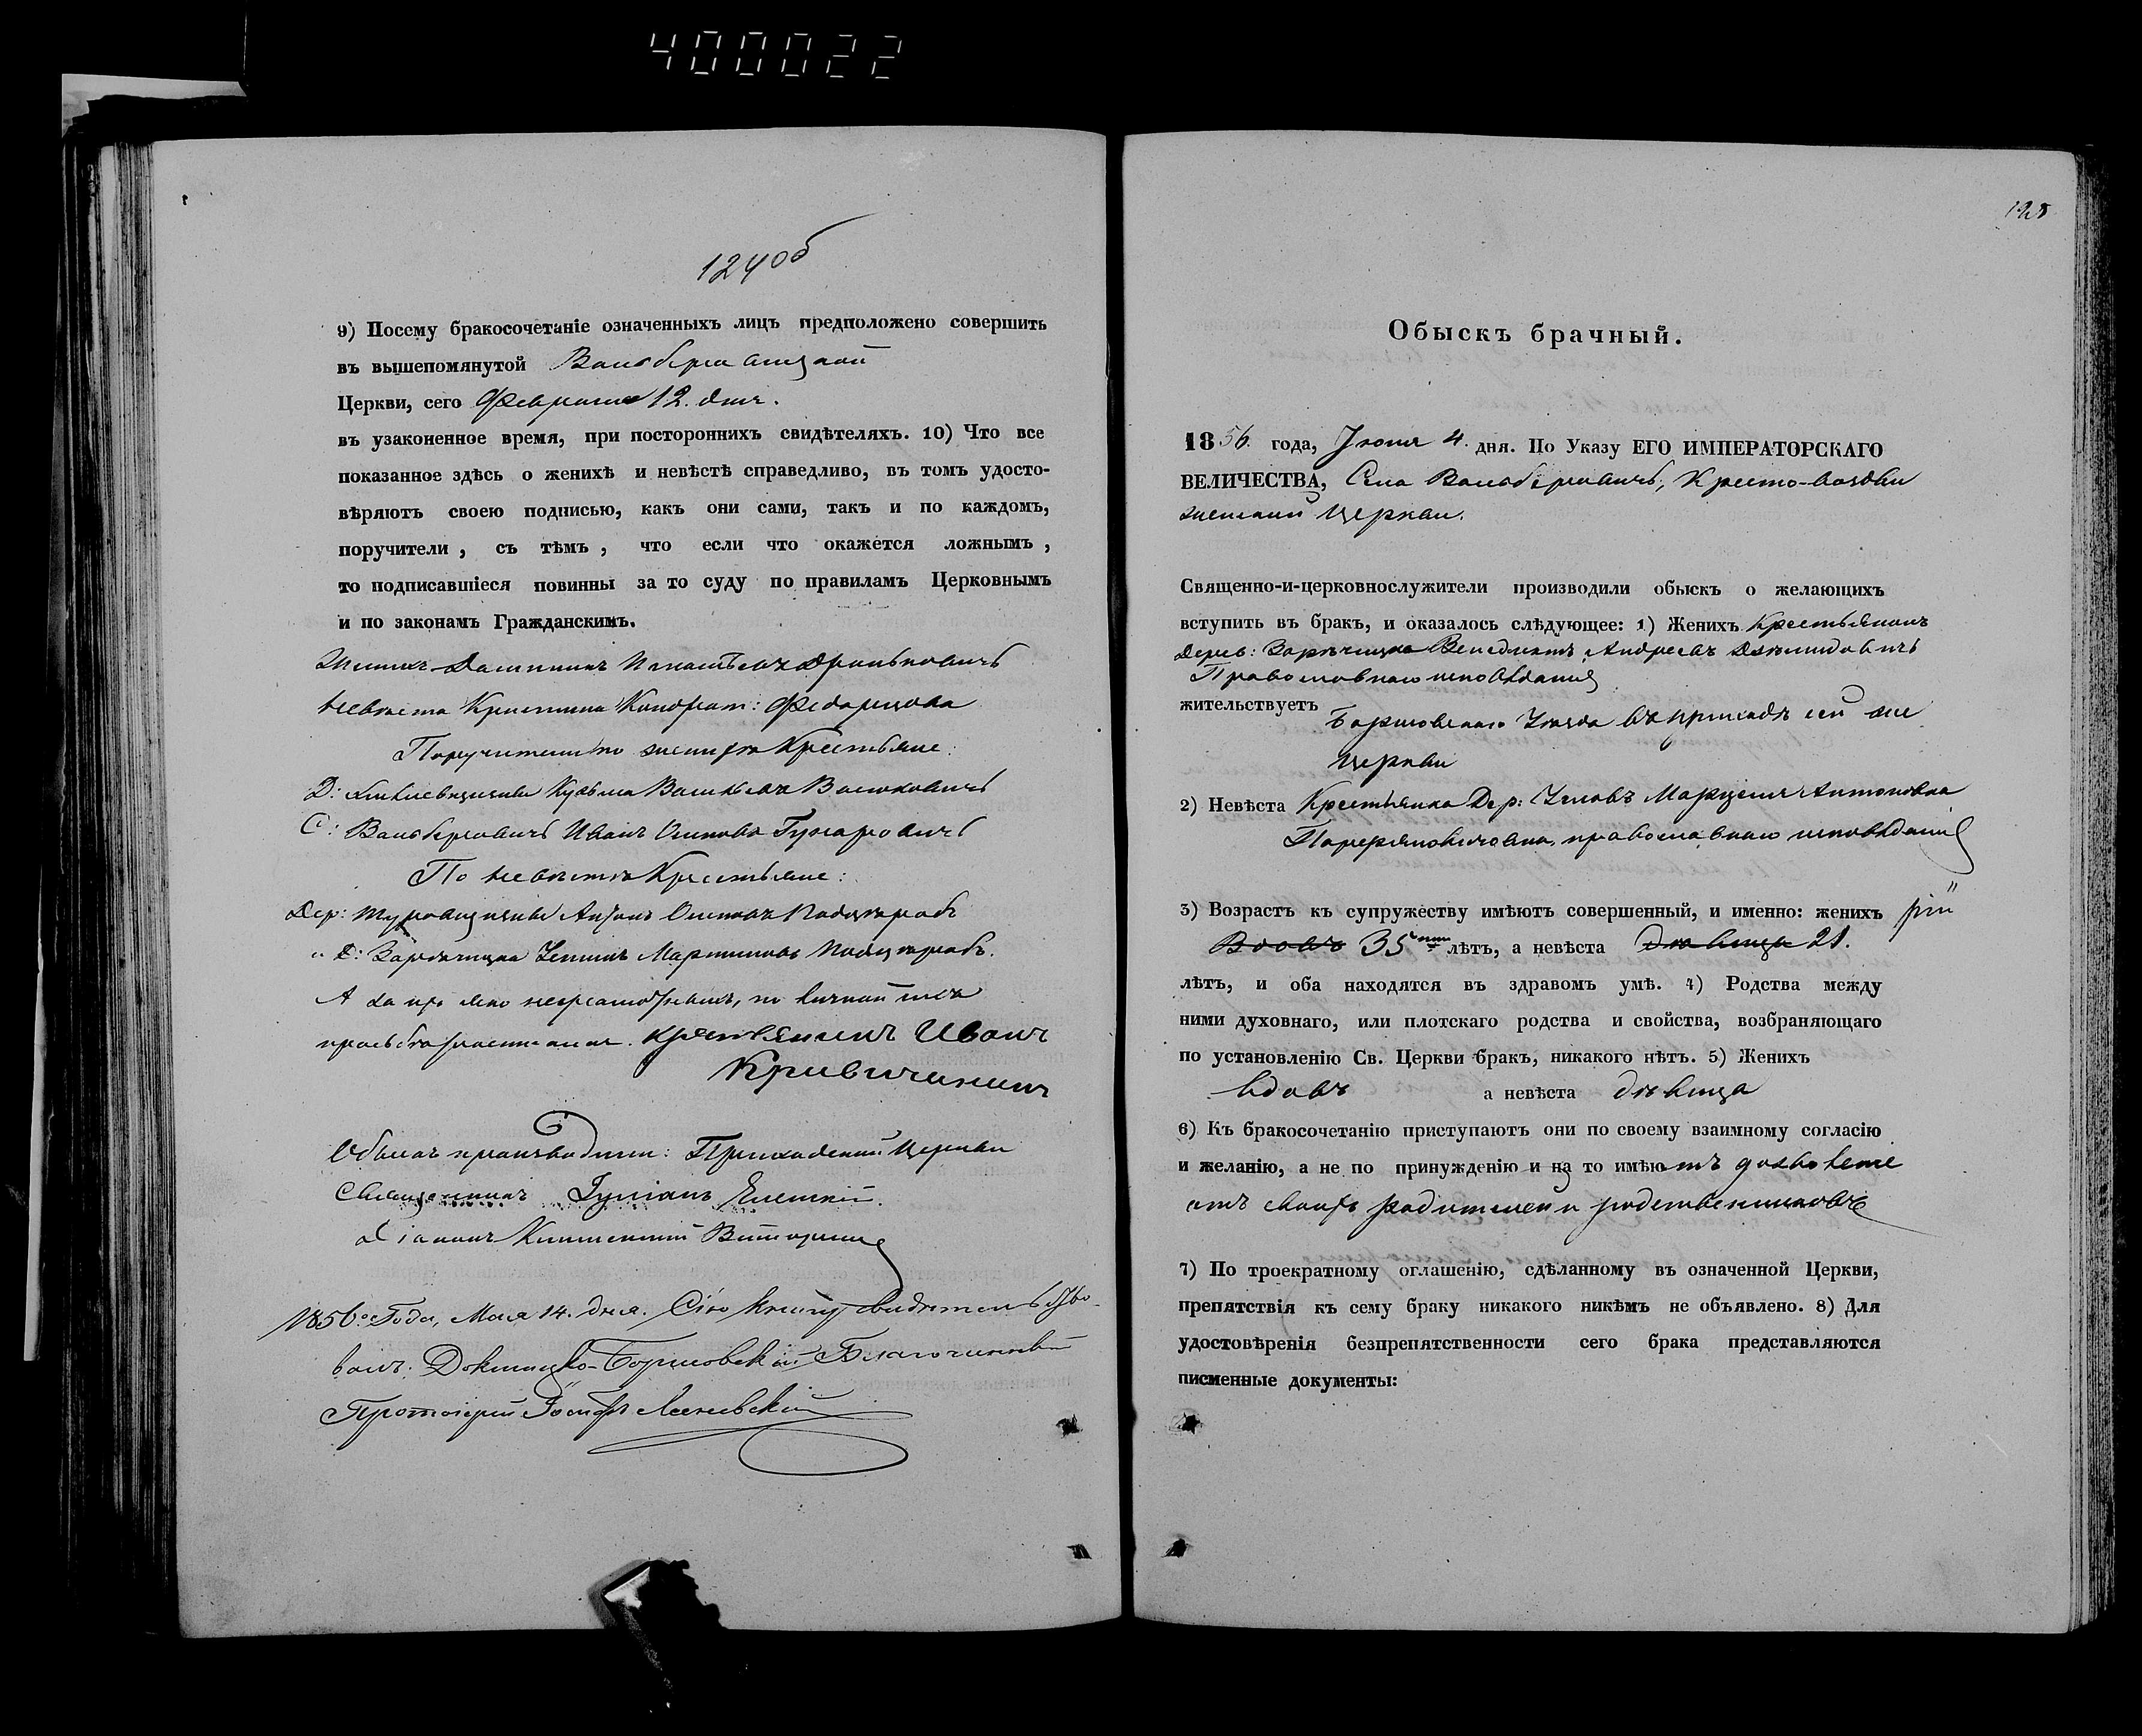 400022
124 об
9) Посему бракосочетаніе означенныхъ лицъ предположено совершить
въ вышепомянутой
Церкви, сего Февраля 12. дня.
въ узаконенное время, при постороннихъ свидѣтеляхъ. 10) Что все
показанное здѣсь о женихѣ и невѣстѣ справедливо, въ томъ удосто-
вѣряютъ своею подписью, какъ они сами, такъ и по каждомъ,
поручители, съ тѣмъ, что если что окажется ложнымъ,
то подписавшіеся повинны за то суду по правиламъ Церковнымъ
и по законамъ Гражданскимъ.
Женихъ
Невѣста Кристина Кондрат:
Поручители по женихѣ Крестьяне:
Кузьма
С: Иванъ Осиповъ
По невѣстѣ Крестьяне:
Дер: Осиповъ
Д: Заречицка Мартиновъ
А за просьбѣ росписался. Крестьянинъ Иванъ
Кривичанинъ
Обыскъ производили: Приходской Церкви
Священникъ Іуліанъ
Діаконъ
1856го Года, Мая 14. дня. Сію книгу свидѣтельство-
валъ: Докшицко-Борисовскій Благочинный
Протоіерей Іосифъ
125
Обыскъ брачный.
1856. года, Іюня 4. дня. По Указу ЕГО ИМПЕРАТОРСКАГО
ВЕЛИЧЕСТВА, Села Кресто-воздви
женской Церкви.
Священно-и-церковнослужители производили обыскъ о желающихъ
вступить въ бракъ, и оказалось слѣдующее: 1) Женихъ Крестьянинъ
Дерев: Заречицка Венедиктъ Андреевъ
Православнаго исповѣданія
жительствуетъ Борисовскаго Уѣзда въ приходѣ сей же
Церкви
2) Невѣста Крестьянка Дер: Антоновна
православнаго исповѣданія
3) Возрастъ къ супружеству имѣютъ совершенный, и именно: женихъ
Вдовъ 35 лѣтъ, а невѣста дѣвица 21.
лѣтъ, и оба находятся въ здравомъ умѣ. 4) Родства между
ними духовнаго, или плотскаго родства и свойства, возбраняющаго
по установленію Св. Церкви бракъ, никакого нѣтъ. 5) Женихъ
вдовъ а невѣста дѣвица
6) Къ бракосочетанію приступаютъ они по своему взаимному согласію
и желанію, а не по принужденію и на то имѣютъ
отъ своихъ родителей и родственниковъ
7) По троекратному оглашенію, сдѣланному въ означенной Церкви,
препятствія къ сему браку никакого никѣмъ не объявлено. 8) Для
удостовѣренія безпрепятственности сего брака представляются
писменные документы: